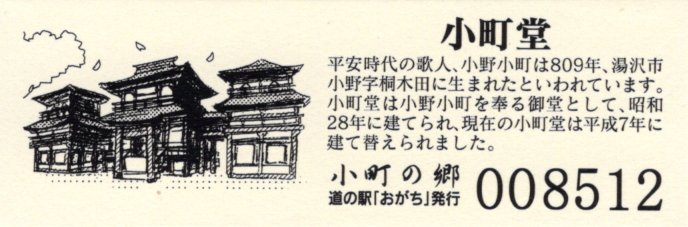 小町堂
平安時代の歌人、小野小町は809年、湯沢市
小野字桐木田に生まれたといわれています。
小町堂は小野小町を奉る御堂として、昭和
28年に建てられ、現在の小町堂は平成7年に
建て替えられました。
小町の郷
道の駅「おがち」発行
008512